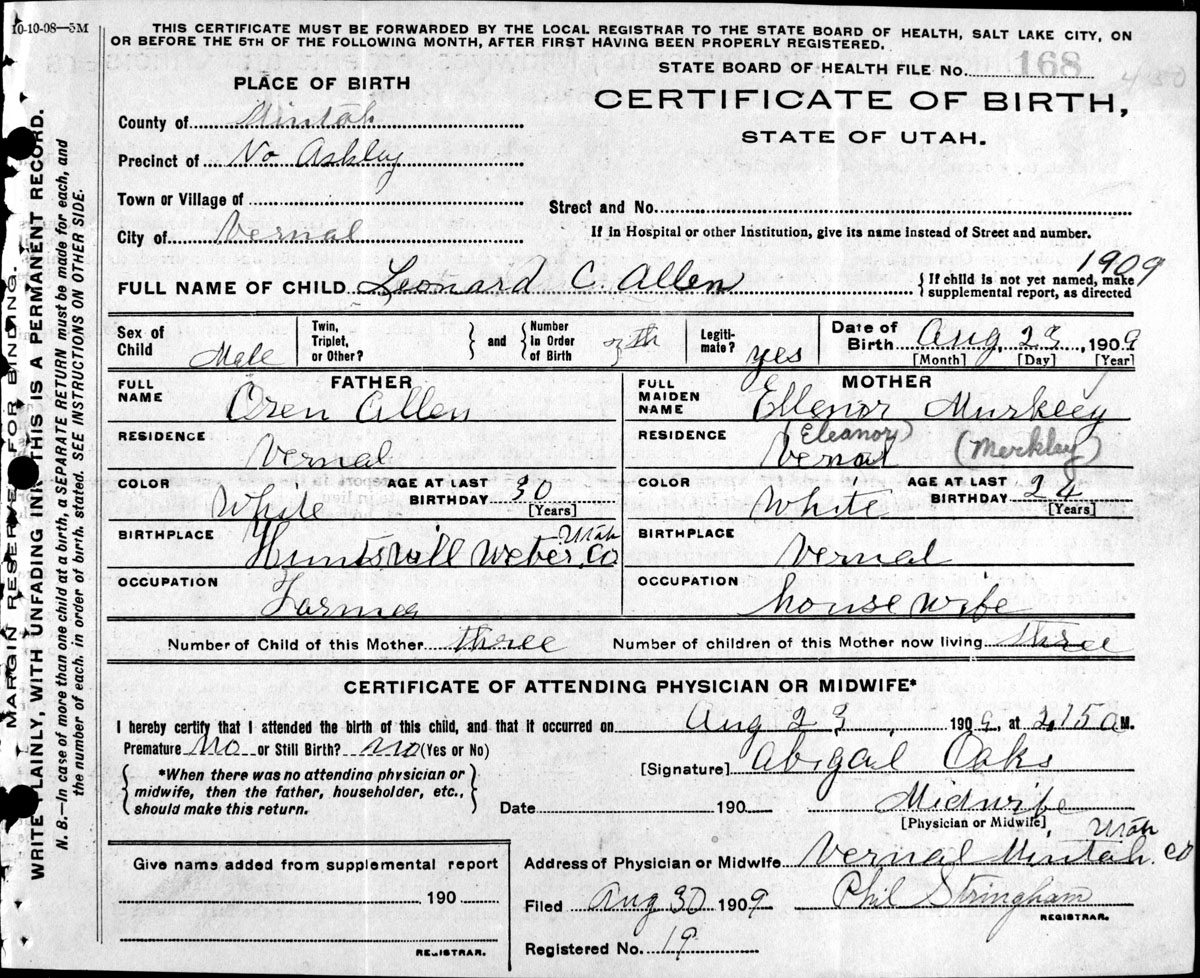 10-10-08—5M
THIS CERTIFICATE MUST BE FORWARDED BY THE LOCAL REGISTRAR TO THE STATE BOARD OF HEALTH, SALT LAKE CITY, ON
OR BEFORE THE 5TH OF THE FOLLOWING MONTH, AFTER FIRST HAVING BEEN PROPERLY REGISTERED.
STATE BOARD OF HEALTH FILE No. 168
CERTIFICATE OF BIRTH,
STATE OF UTAH.
PLACE OF BIRTH
County of Uintah
Precinct of No Ashley
Town or Village of
City of Vernal
Street and No.
If in Hospital or other Institution, give its name instead of Street and number.
1909
FULL NAME OF CHILD Leonard C. Allen { If child is not yet named, make
supplemental report, as directed
Sex of Child Male
Twin, Triplet, or Other? } and { Number in Order of Birth
Legiti-mate? yes
Date of Birth Aug 23, 1909
[Month] [Day] [Year]
FATHER
FULL NAME Oren Allen
RESIDENCE Vernal
COLOR White AGE AT LAST BIRTHDAY 30 [Years]
BIRTHPLACE Huntsvill Weber Co Utah
OCCUPATION Farmer
MOTHER
FULL MAIDEN NAME Ellenor Murkeey
(Eleanor) (Merkley)
RESIDENCE Vernal
COLOR White AGE AT LAST BIRTHDAY 24 [Years]
BIRTHPLACE Vernal
OCCUPATION house wife
Number of Child of this Mother three Number of children of this Mother now living three
CERTIFICATE OF ATTENDING PHYSICIAN OR MIDWIFE*
I hereby certify that I attended the birth of this child, and that it occurred on Aug 23, 1909, at 2,15 a M.
Premature No or Still Birth? no (Yes or No)
[Signature] Abigail Oaks
{ *When there was no attending physician or
midwife, then the father, householder, etc.,
should make this return. }
Date 190 Midwife
[Physician or Midwife]
Address of Physician or Midwife Vernal Uintah Co Utah
Filed Aug 30 1909 Phil Stringham
REGISTRAR.
Registered No. 19
Give name added from supplemental report
190
REGISTRAR.
MARGIN RESERVED FOR BINDING.
WRITE PLAINLY, WITH UNFADING INK—THIS IS A PERMANENT RECORD.
N. B.—In case of more than one child at a birth, a SEPARATE RETURN must be made for each, and
the number of each, in order of birth, stated. SEE INSTRUCTIONS ON OTHER SIDE.